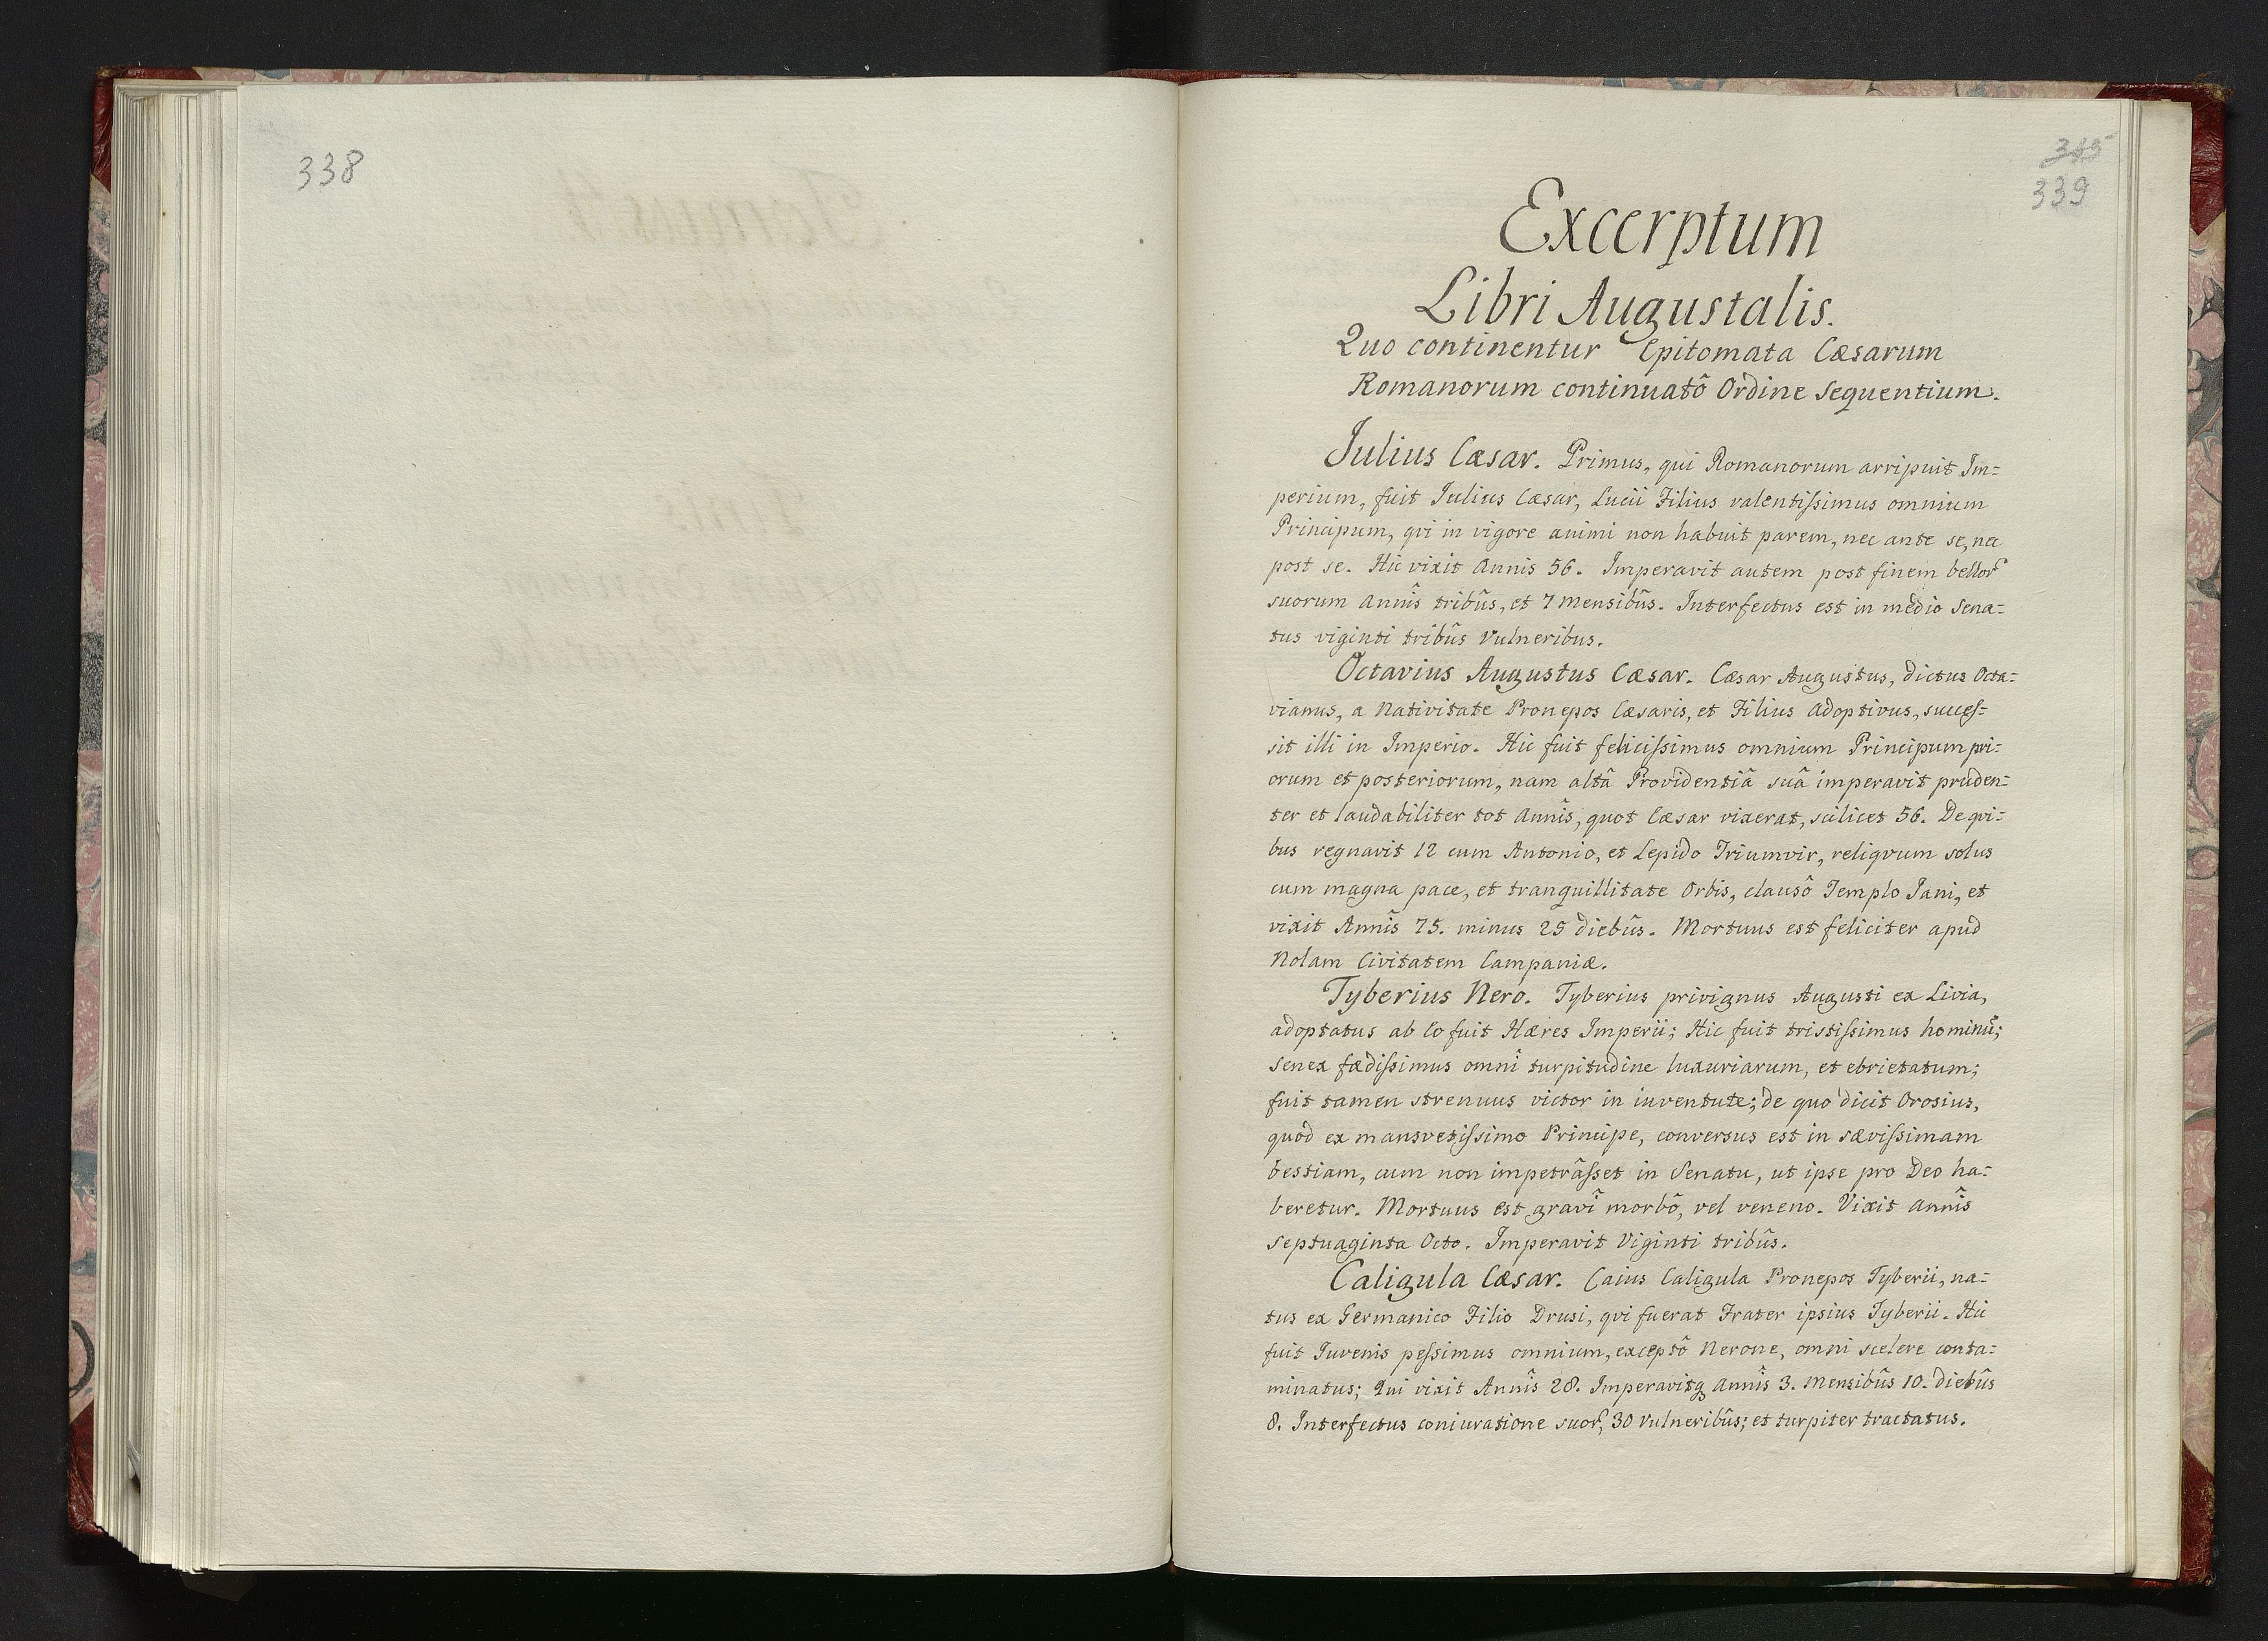 338
339
Excerptum
Libri Augustalis.
Quo continentur Epitomata Cæsarum
Romanorum continuatô Ordine sequentium.
Julius Cæsar. Primus, qui Romanorum arripuit Im=
perium, fuit Julius Cæsar, Lucii Filius valentissimus omnium
Principum, qvi in vigore animi non habuit parem, nec ante se, nec
post se. Hic vixit Annis 56. Imperavit autem post finem bellor̃
suorum Annîs tribûs, et 7 mensibûs. Interfectus est in medio Sena=
tus viginti tribûs Vulneribus.
Octavius Augustus Cæsar. Cæsar Augustus, dictus Octa=
vianus, a Nativitate Pronepos Cæsaris, et Filius Adoptivus, succes=
sit illi in Imperio. Hic fuit felicissimus omnium Principum pri=
orum et posteriorum, nam altâ Providentiâ suâ imperavit pruden=
ter et laudabiliter tot Annîs, quot Cæsar vixerat, scilicet 56. De qvi=
bus regnavit 12 cum Antonio, et Lepido Triumvir, reliqvum solus
cum magna pace, et tranquillitate Orbis, clausô Templo Jani, et
vixit Annîs 75. minus 25 diebûs. Mortuus est feliciter apud
Nolam Civitatem Campaniæ.
Tyberius Nero. Tyberius privignus Augusti ex Livia,
adoptatus ab Eo fuit Hæres Imperii; Hic fuit tristissimus hominũ;
senex fædissimus omnî turpitudine luxuriarum, et ebrietatum;
fuit tamen strenuus victor in iuventute; de quo dicit Orosius,
quod ex mansvetissimo Principe, conversus est in sævissimam
bestiam, cum non impetrâsset in Senatu, ut ipse pro Deo ha=
beretur. Mortuus est gravî morbô, vel veneno. Vixit annîs
septuaginta Octo. Imperavit Viginti tribûs.
Caligula Cæsar. Caius Caligula Pronepos Tyberii, na=
tus ex Germanico Filio Drusi, qvi fuerat Frater ipsius Tyberii. Hic
fuit Juvenis pessimus omnium, exceptô Nerone, omni scelere conta=
minatus; Qui vixit Annîs 28. Imperavitq Annîs 3. Mensibûs 10. diebûs
8. Interfectus coniuratione suor̃, 30 Vulneribûs; et turpiter tractatus.